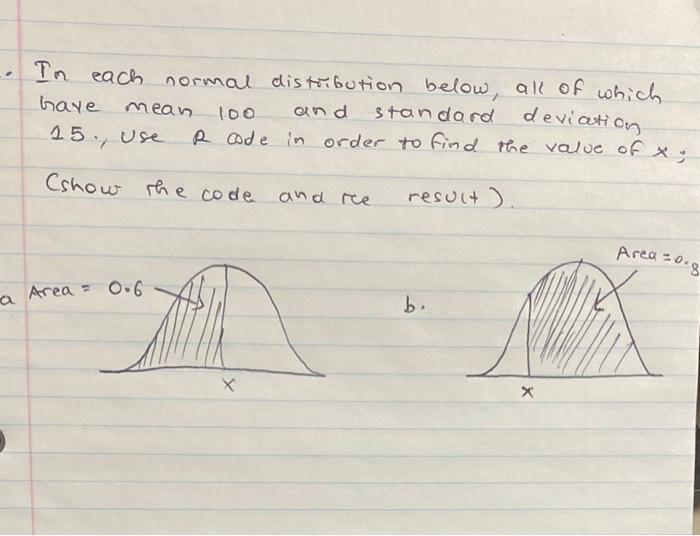 . In each normal distribution below, all of which
have mean 100 and standard deviation
15., Use R code in order to find the value of x;
(show the code and the result).
Area = 0.8
a Area = 0.6
b.
x
x